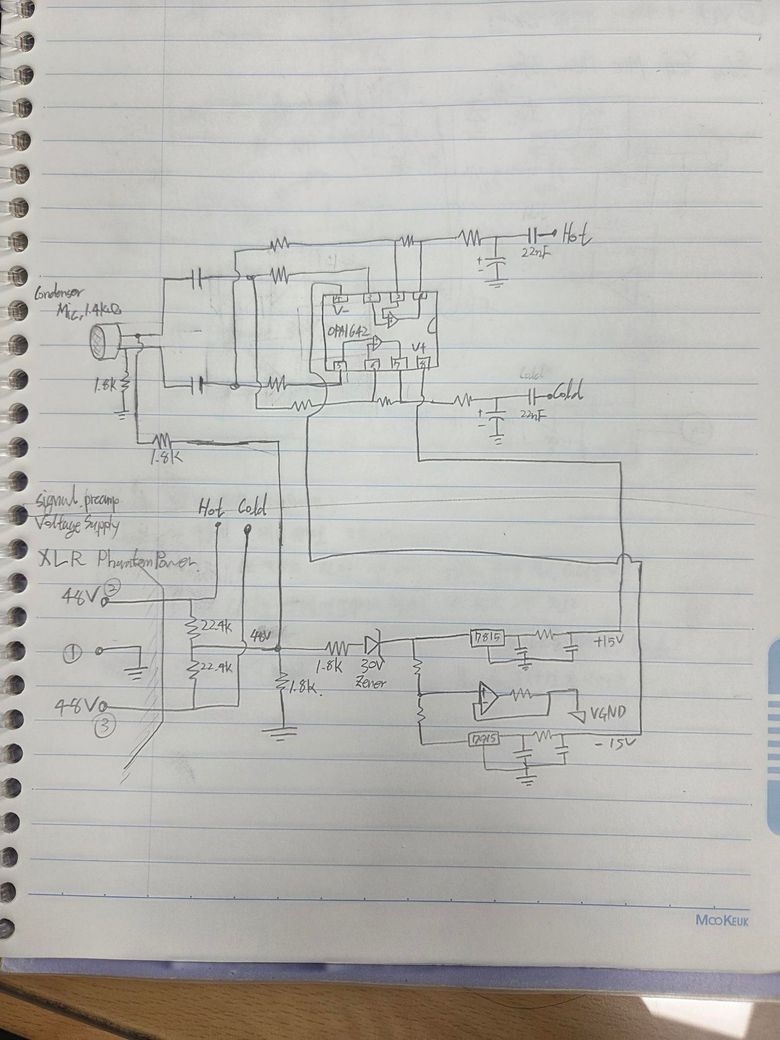 Hot
22nF
Condenser
Mic, 1.4kΩ
V-
OPA1642
V+
1.8k
Cold
22nF
1.8K
Signal preamp
Voltage Supply
Hot Cold
XLR Phantom Power.
48V ②
22.4k
48V
7815
+15V
①
22.4k
1.8k
30V
Zener
1.8k.
VGND
48V
③
7915
-15V
MOOKEUK